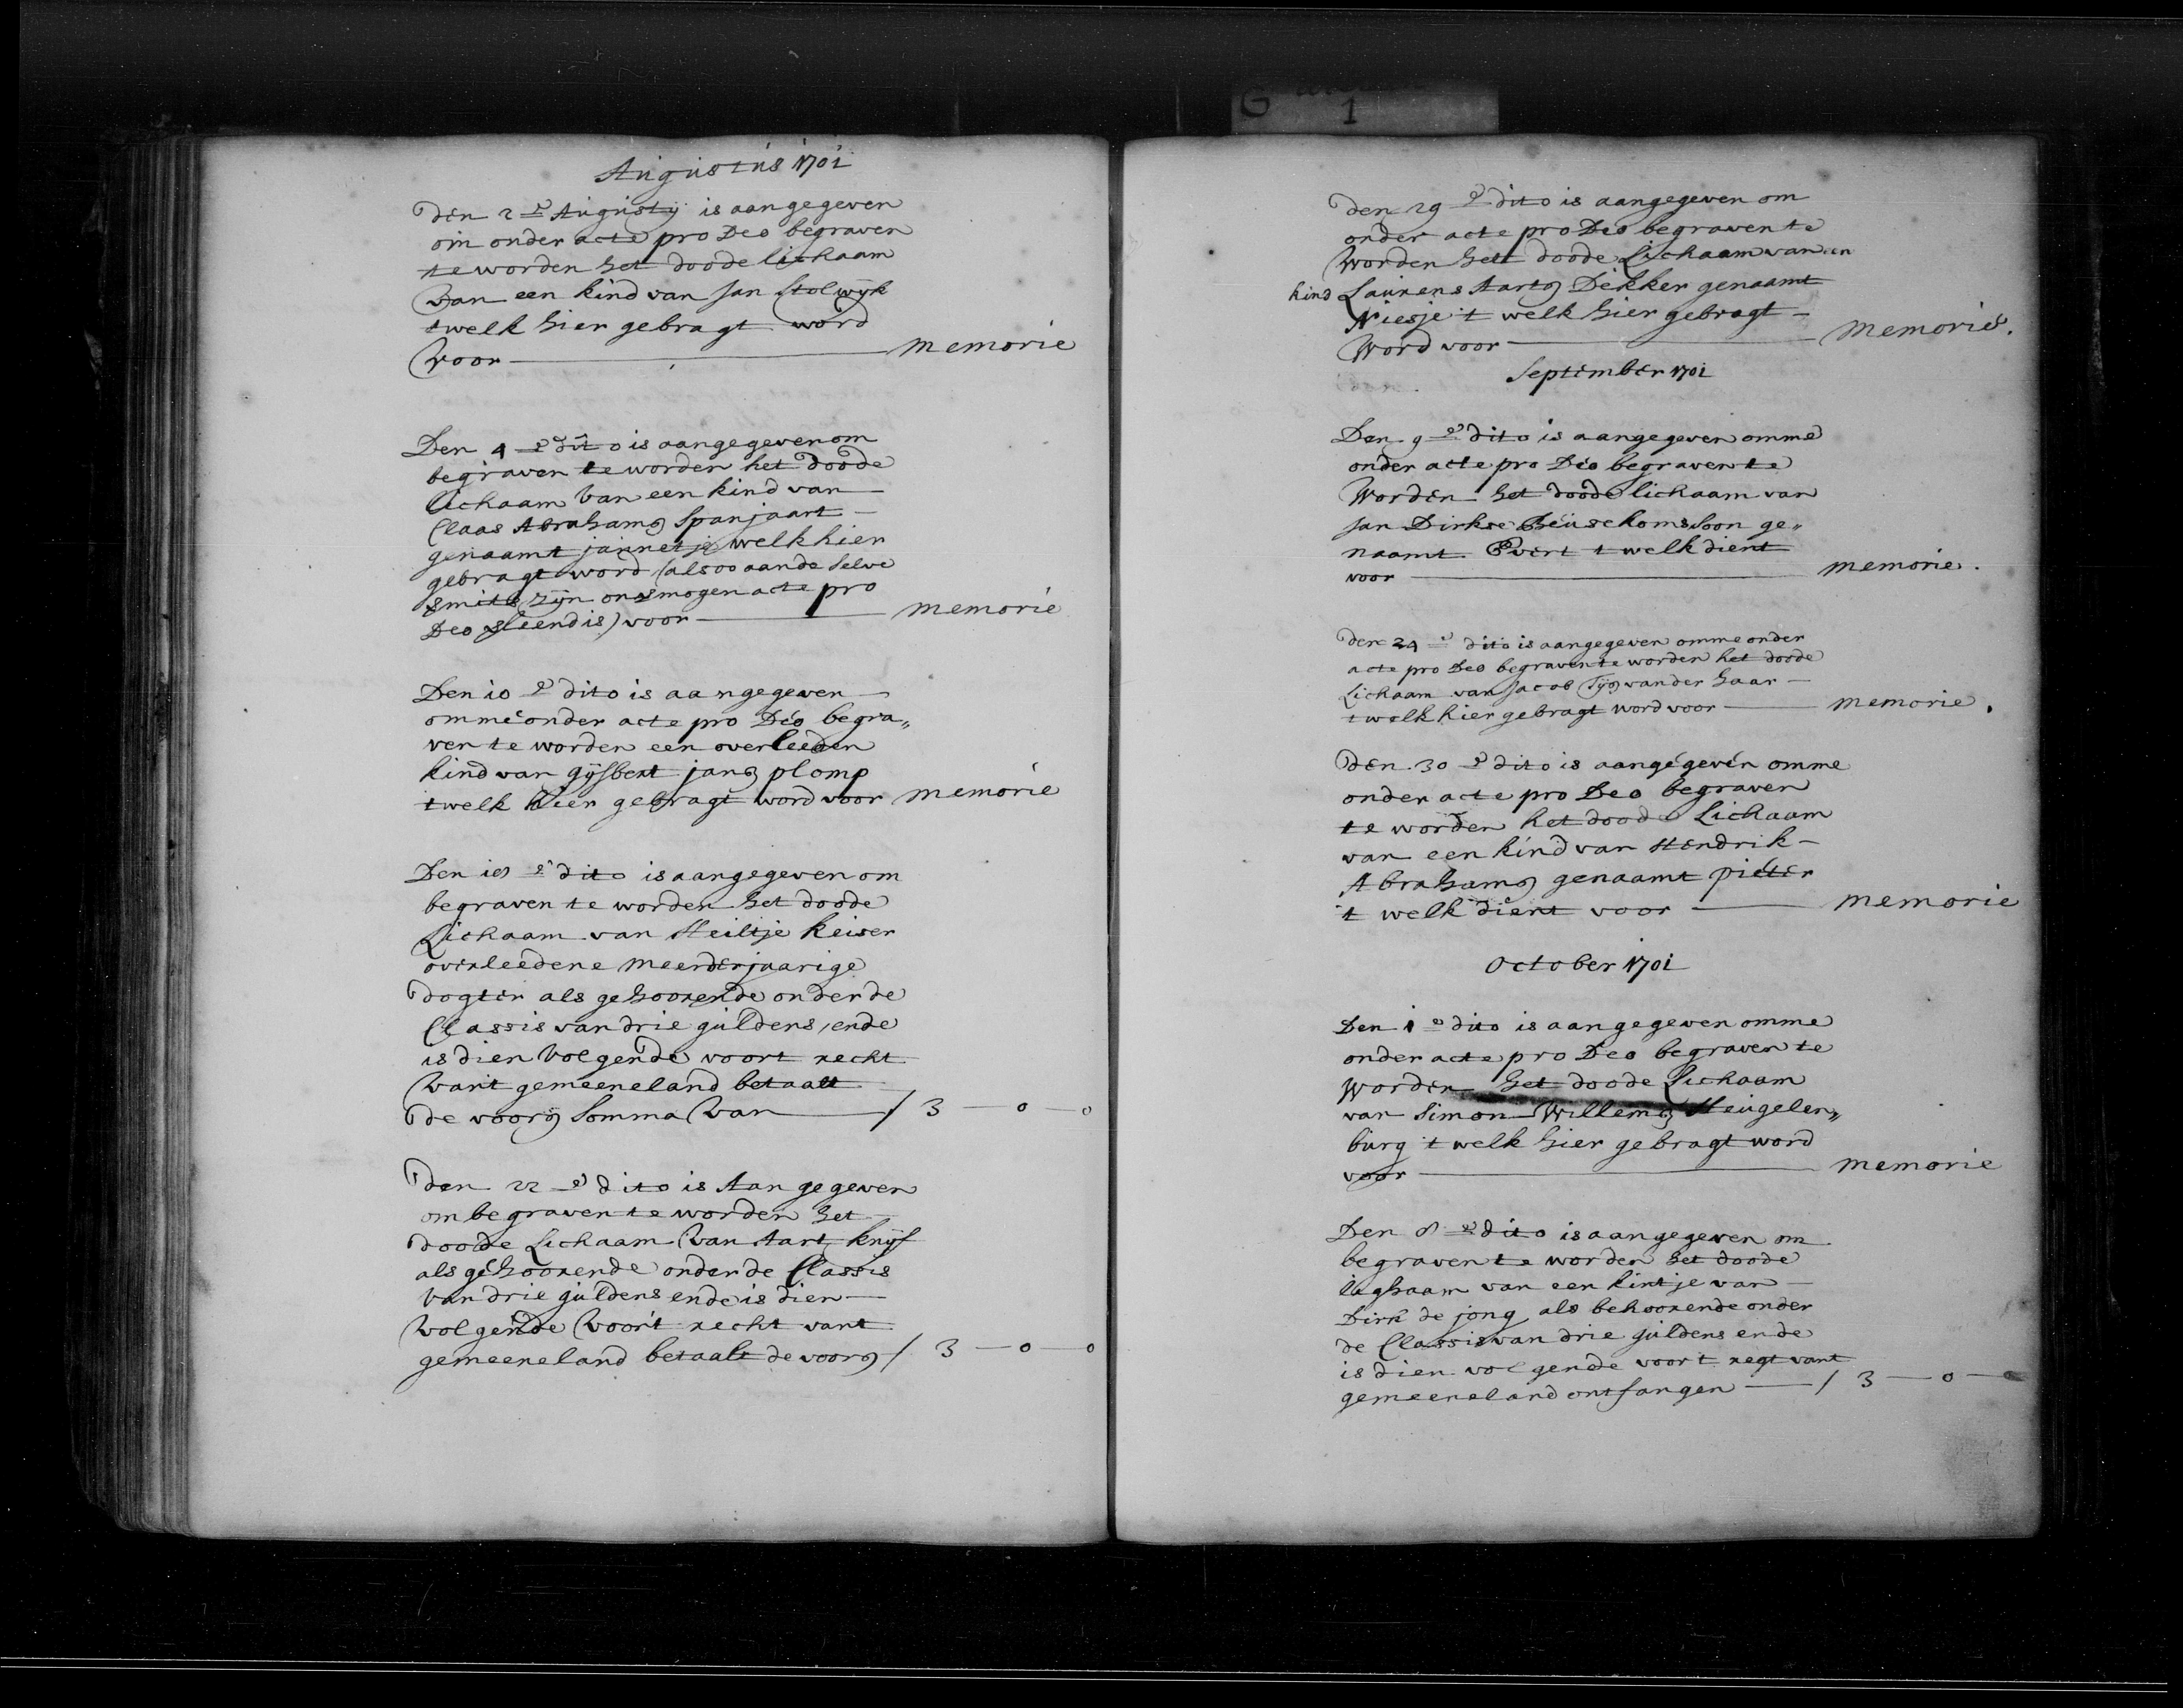 Augustus 1701
den 2e Augustij is aangegeven
om onder acte pro Deo begraven
te worden het doode lichaam
van een kind van Jan Stolwijk
twelk hier gebragt word
voor memorie
Den 4e dito is aangegeven om
begraven te worden het doode
lichaam van een kind van
Claas Abrahams Spanjaart
genaamt jannetje welk hier
gebragt word (alsoo aande selve
mits zijn onvermogen acte pro
Deo verleend is) voor memorie
Den 10e dito is aangegeven
omme onder acte pro Deo begra„
ven te worden een overleeden
kind van gijsbert jans plomp
twelk hier gebragt word voor memorie
Den e dito is aangegeven om
begraven te worden het doode
Lichaam van Heiltje Keiser
overleedene meerderjaarige
dogter als gehoorende onder de
Classis van drie guldens, ende
is dien volgende voort recht
vant gemeeneland betaalt
de voors somma van f 3 — 0 — 0
den 22e dito is Aangegeven
om begraven te worden het
doode Lichaam van Aart Knijf
als gehoorende onder de Classis
van drie guldens ende is dien
volgende voort recht vant
gemeeneland betaalt de voors f 3 — 0 — 0
G
1
den 29e dito is aangegeven om
onder acte pro Deo begraven te
worden het doode Lichaam van een
kind Laurens Aarts Dekker genaamt
Niesje t welk hier gebragt
word voor memorie.
September 1701
Den 9e dito is aangegeven omme
onder acte pro Deo begraven te
worden het doode lichaam van
Jan Dirkse Beusekoms Soon ge„
naamt Evert t welk dient
voor memorie.
den 24e dito is aangegeven omme onder
acte pro Deo begraven te worden het doode
Lichaam van Jacob Tijs vander Haar
twelk hier gebragt word voor memorie.
den 30e dito is aangegeven omme
onder acte pro Deo begraven
te worden het doode Lichaam
van een kind van Hendrik
Abrahams genaamt pieter
t welk dient voor memorie
October 1701
Den 1e dito is aangegeven omme
onder acte pro Deo begraven te
worden het doode Lichaam
van Simon Willems Heugelen„
burg t welk hier gebragt word
voor memorie
Den 8e dito is aangegeven om
begraven te worden het doode
lighaam van een kintje van
Dirk de jong als behoorende onder
de Classis van drie guldens ende
is dien volgende voort regt vant
gemeeneland ontfangen f 3 — 0 — 0